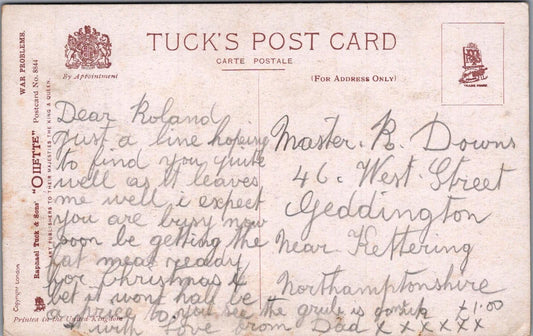 WAR PROBLEMS.
Postcard No. 8844
"OILETTE"
Raphael Tuck & Sons'
ART PUBLISHERS TO THEIR MAJESTIES THE KING & QUEEN.
Copyright London
By Appointment
TUCK'S POST CARD
CARTE POSTALE
(FOR ADDRESS ONLY)
TRADE MARK
Dear Roland
just a line hoping
to find you quite
well as it leaves
me well, i expect
you are busy now
soon be getting the
fat meat ready
for christmas &
bet it wont half be
to you see the grub is
with Love from Dad x x x x x x
Master. R. Downs
46. West. Street
Geddington
Near Kettering
Northamptonshire
x1.00
Printed in the United Kingdom